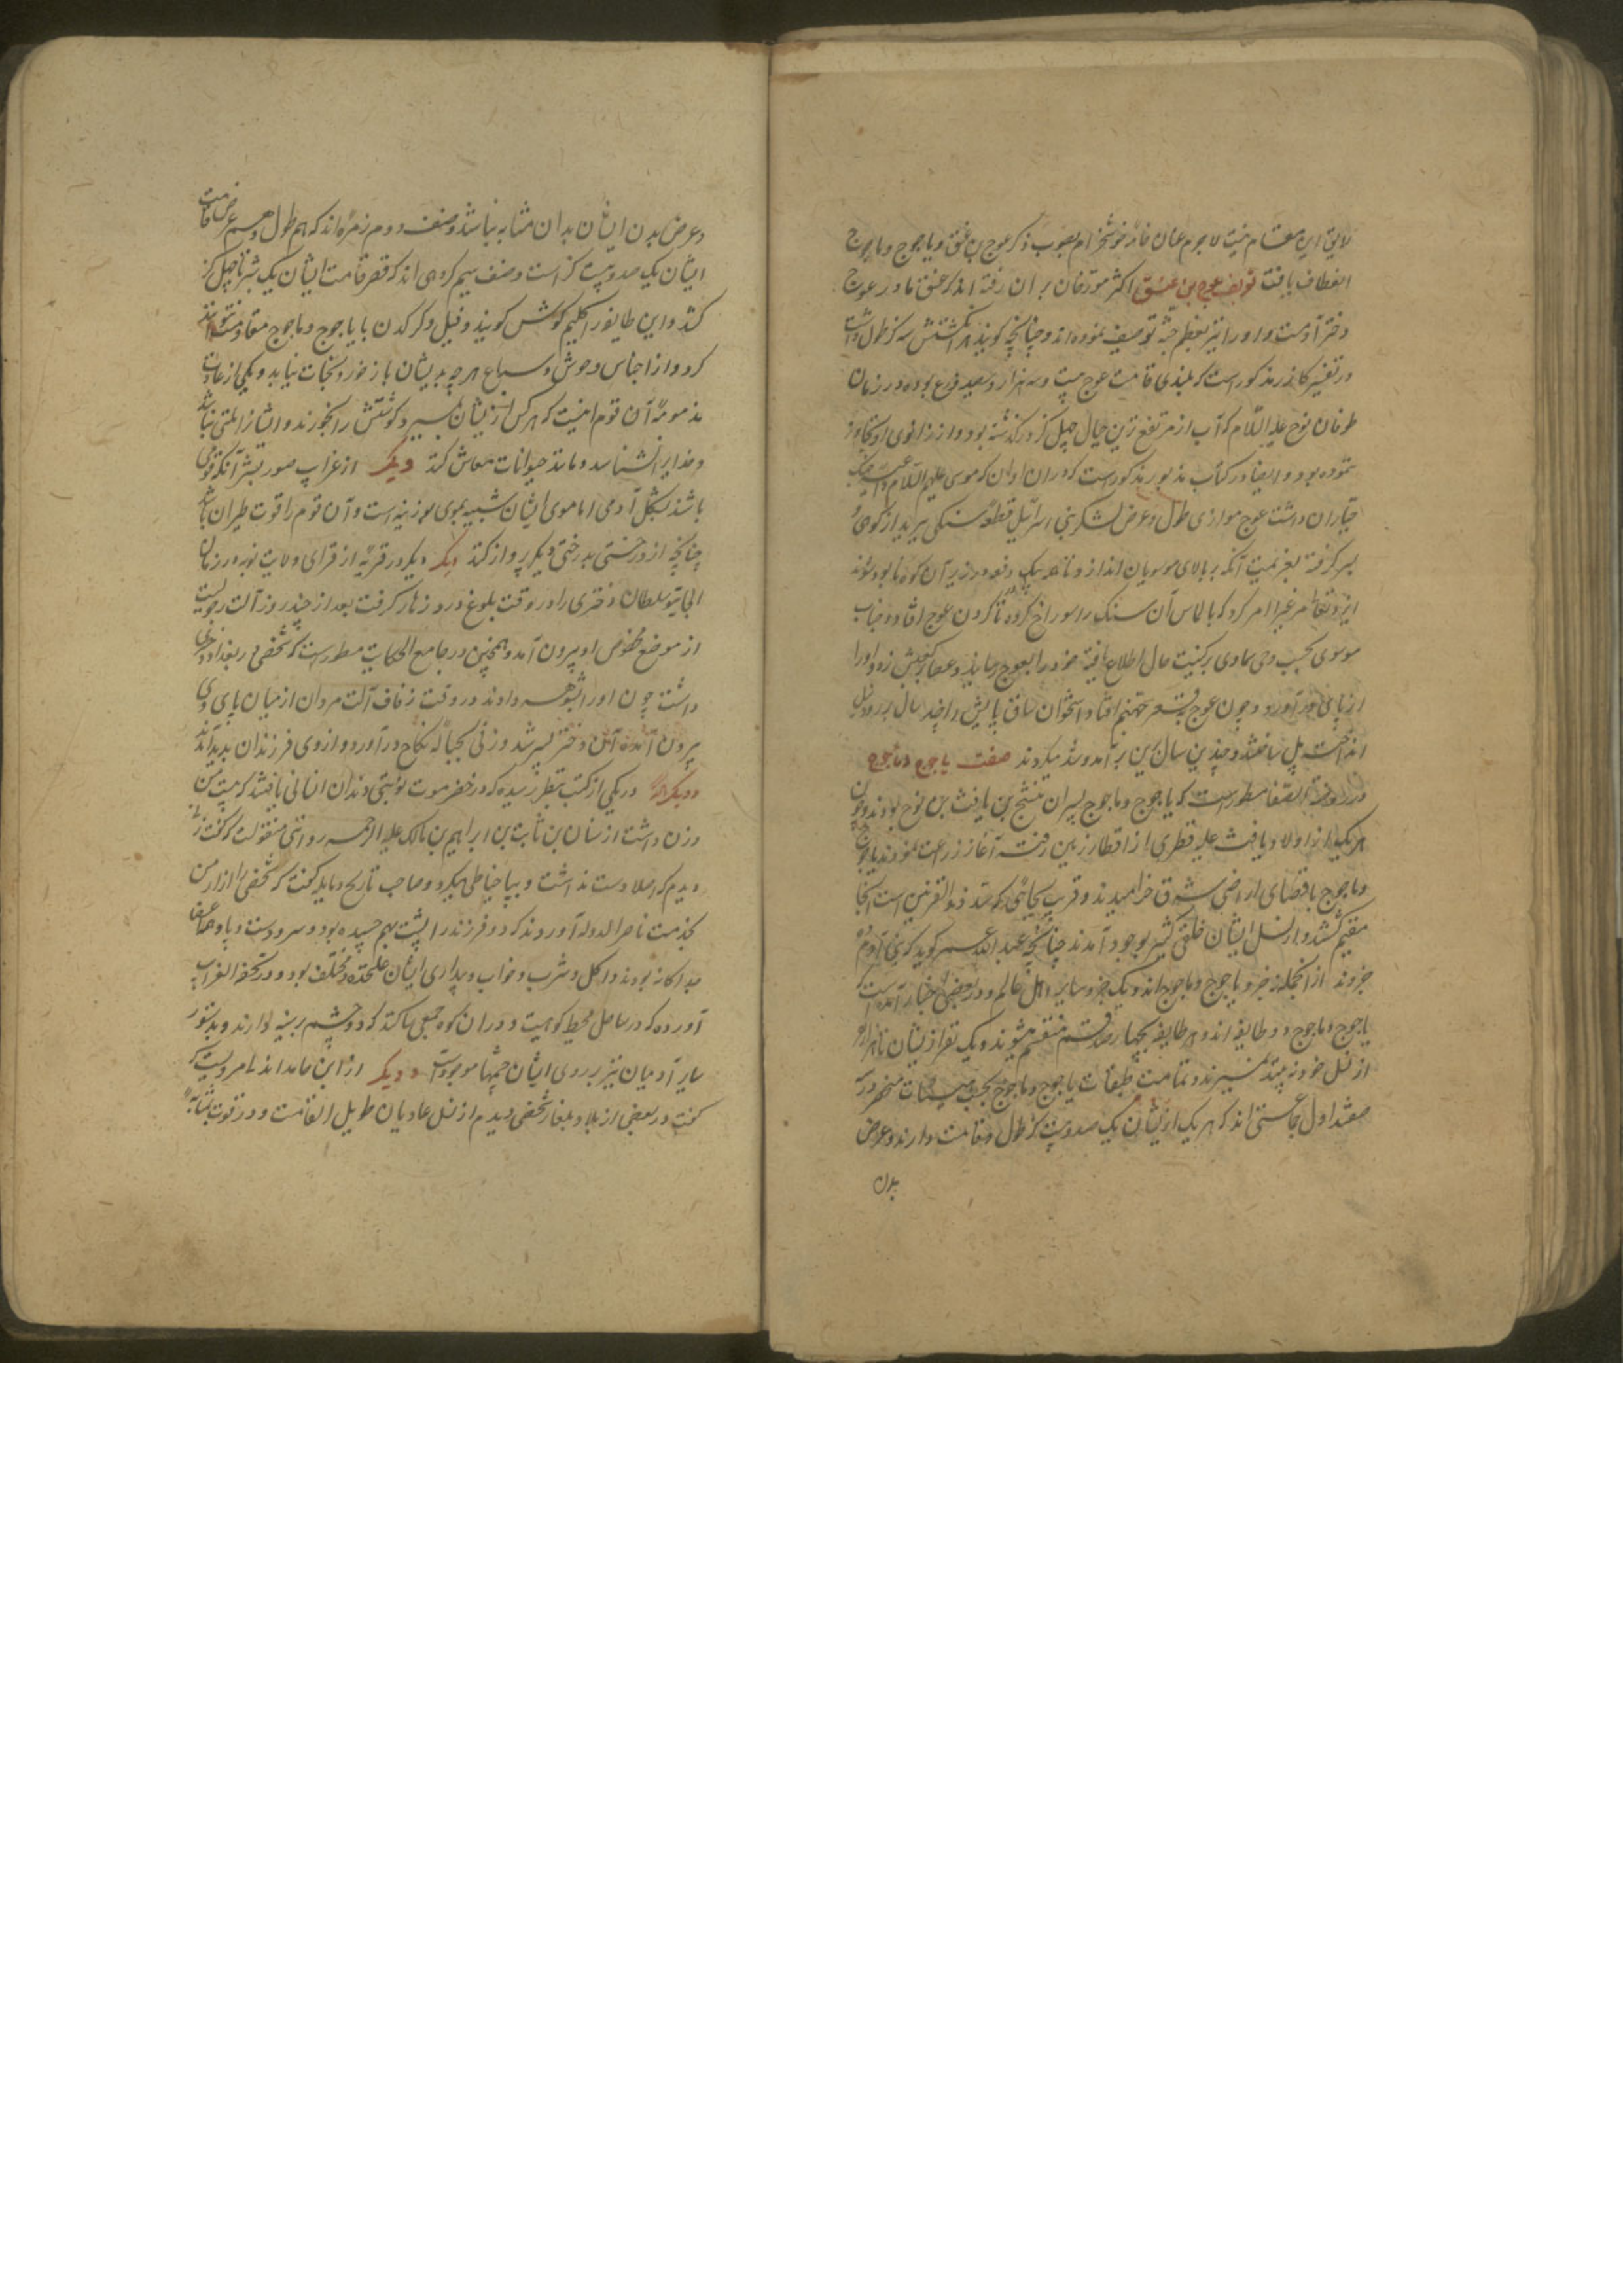 لایق این مقام نیت لاجرم عنان خامه خوشخرام بصوب ذکر عوج بن عنق و یاجوج و ماجوج
انعطاف یافت تعریف عوج بن عنق اکثر مورخان بر ان رفته اند که عنق مادر عوج
دختر آدمست و او را نیز بعظم جثه توصیف نموده اند و چنانچه کویند هر انکشتش سه کز طول داشت
در تفسیر کازر مذکورست که بلندی قامت عوج بیست و سه هزار و سیصد ذرع بوده در زمان
طوفان نوح علیه السلام که آب از مرتفع ترین جبال چهل کز درکذشته بود و از زانوی او تجاوز
ننموده بود و ایضا در کتاب مذبور مذکورست که در ان اوان که موسی علیه السلام داعیه جنک
جباران داشت عوج موازی طول و عرض لشکر بنی اسرائیل قطعه سنکی ببرید از کوهی و
بسر کرفته بعزیمت آنکه بر بالای موسویان اندازد تا همه بیک دفعه در زیر آن کوه نابود شوند
ایزد تعالی مرغیرا امر کرد که با الماس آن سنک را سوراخ کرده تا کردن عوج افتاد و جناب
موسوی بحسب وحی سماوی بر کیفیت حال اطلاع یافته خود را بعوج رسانید و عصا بر کعبش زد و او را
از پای درآورد و چون عوج بقعر جهنم افتاد استخوان ساق پایش را چند سال بر رود نیل
انداخته پل ساختند و چندین سال برین برآمد و شد میکردند صفت یاجوج و ماجوج
در روضة الصفا مسطورست که یاجوج و ماجوج پسران منشج بن یافث بن نوح بودند و چون
هر یک از اولاد یافث علیه قطری از اقطار زمین رفته آغاز زراعت نمودند یاجوج
و ماجوج باقصای اراضی شرق خرامیدند و قریب بجائی که سد ذو القرنین است انجا
مقیم کشتند و از نسل ایشان خلقی کثیر بوجود آمدند چنانچه عبد الله عمر کوید که بنی آدم ده
جزوند از انجمله نه جزو یاجوج و ماجوج اند و یک جزو سایر اهل عالم و در بعضی اخبار آمده است که
یاجوج و ماجوج دو طایفه اند و هر طایفه بچهار صد قسم منقسم میشوند و یک نفر از یشان تا هزار
از نسل خود نه بیند نمیرند و تمامت طبقات یاجوج و ماجوج بحسب هیئات منحصر در سه
صفند اول جماعتی اند که هر یک از یشان یک صد و بیست کز طول قامت دارند و عرض
بدن
و عرض بدن ایشان بدان مثابه نباشد و صنف دوم زمره اند که هم طول و هم عرض قامت
ایشان یک صد و بیست کز است و صنف سیم کروهی اند که قصر قامت ایشان یک شبر تا چهل کز
کشد و این طایفه را کلیم کوش کویند و فیل و کرکدن با یاجوج و ماجوج مقاومت نتوانند
کرد و از اجناس وحوش و سباع هر چه بدیشان باز خورد نجات نیابد و یکی از عادات
مذمومه آن قوم اینست که هر کس از یشان بمیرد کوشتش را بخورند و ایشانرا ملتی نباشد
و خدایرا نشناسند و مانند حیوانات معاش کنند دیکر از غرایب صور بشر آنکه قومی
باشند بشکل آدمی اما موی ایشان شبیه بموی بوزینه است و آن قوم را قوت طیران باشد
چنانچه از درختی بدرختی دیکر پرواز کنند دیکر دیکر در قریه از قرای ولایت نوبه در زمان
الجایتو سلطان دختری را در وقت بلوغ درد زهار کرفت بعد از چند روز آلت رجولیت
از موضع مخصوص او بیرون آمد و همچنین در جامع الحکایت مسطورست که شخصی در بغداد دختری
داشت چون او را بشوهر دادند در وقت زفاف آلت مردان از میان پای وی
بیرون آمده آن دختر پسر شد و زنی بحباله نکاح درآورد و از وی فرزندان پدید آمدند
و دیکر در یکی از کتب بنظر رسیده که در حضرموت نوبتی دندان انسانی یافتند که بیست من
وزن داشت از سنان بن ثابت بن ابراهیم بن مالک علیه الرحمه روایتی منقولست که کفت زنی
دیدم که اصلا دست نداشت و بپا خیاطی میکرد و صاحب تاریخ دمایه کفت که شخصی را از ارمن
بخدمت ناصر الدوله آوردند که دو فرزند را پشت بهم چسپیده بود و سر و دست و پا و همه اعضا
جداکانه بودند و اکل و شرب و خواب و بیداری ایشان علیحده و مختلف بود و در تحفة الغرایب
آورده که در ساحل محیط کوهیست و در ان کوه جمعی ساکنند که دو چشم بر سینه دارند و بدستور
سایر آدمیان نیز بر روی ایشان چشمها موجودست و دیکر از ابن حامد اندلسی مرویست که
کفت در بعضی از بلاد بلغار شخصی دیدم از نسل عادیان طویل القامت و در قوت بمثابه